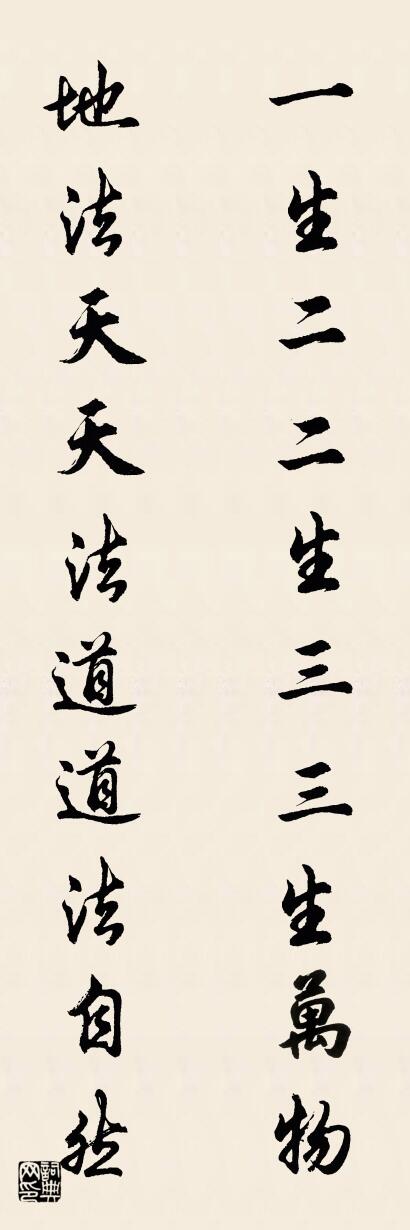 一生二二生三三生萬物
地法天天法道道法自然
詞典網印